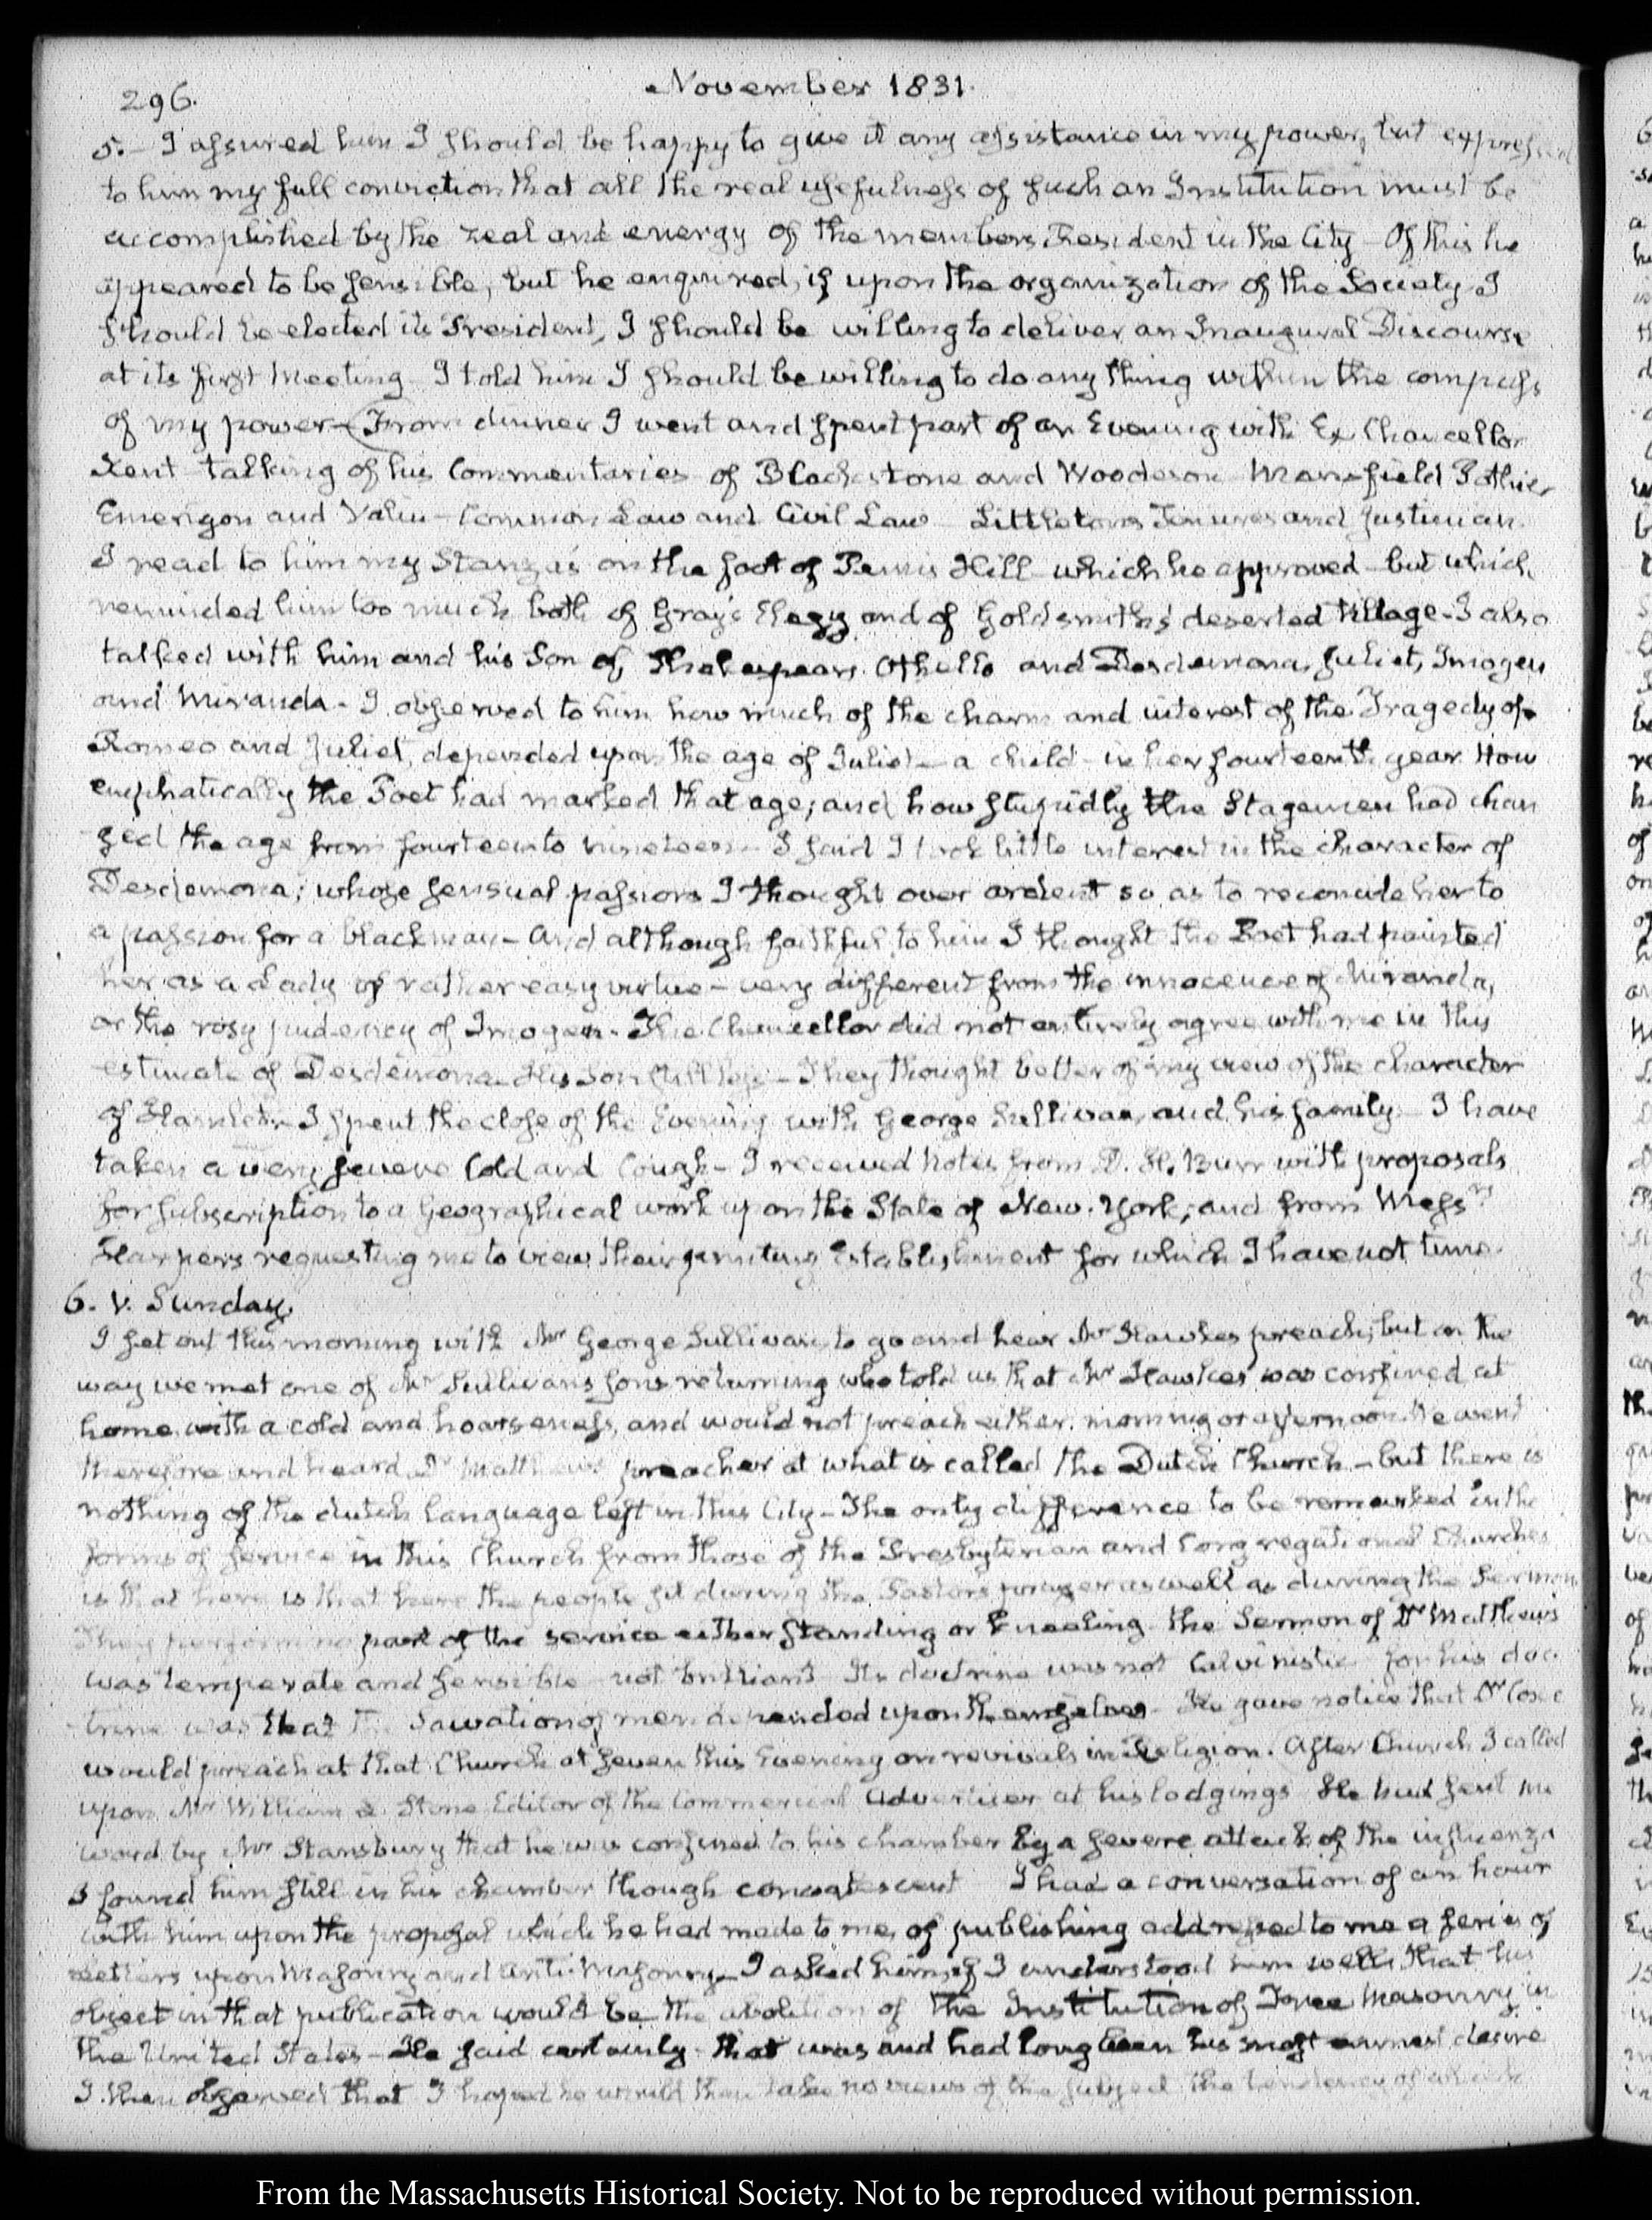 296.
November 1831.
5.- I assured him I should be happy to give it any assistance in my power, but expressed
to him my full conviction that all the real usefulness of such an Institution must be
accomplished by the zeal and energy of the members resident in the City - Of this he
appeared to be sensible, but he enquired, if upon the organization of the Society I
should be elected its President, I should be willing to deliver an Inaugural Discourse
at its first Meeting - I told him I should be willing to do any thing within the compass
of my power - From dinner I went and spent part of an Evening with Ex Chancellor
Kent talking of his Commentaries of Blackstone and Woodeson Mansfield Pothier
Emerigon and Valin - Common Law and Civil Law Littletons Tenures and Justinian.
I read to him my Stanzas on the foot of Penns Hill which he approved - but which
reminded him too much both of Gray's Elegy and of Goldsmith's deserted village - I also
talked with him and his Son of Shakespear. Othello and Desdemona, Juliet, Imogen
and Miranda - I observed to him how much of the charm and interest of the Tragedy of
Romeo and Juliet, depended upon the age of Juliet - a child - in her fourteenth year How
emphatically the Poet had marked that age; and how stupidly the Stagemen had chan
ged the age from fourteen to nineteen - I said I took little interest in the character of
Desdemona; whose sensual passions I thought over ardent so as to reconcile her to
a passion for a black man - and although faithful to him I thought the Poet had painted
her as a Lady of rather easy virtue - very different from the innocence of Miranda,
or the rosy pudency of Imogen - The Chancellor did not entirely agree with me in this
estimate of Desdemona - His Son still less - They thought better of my view of the character
of Hamlet. I spent the close of the Evening with George Sullivan, and his family. I have
taken a very severe Cold and Cough - I received Notes from D. H. Burr with proposals
for subscription to a Geographical work upon the State of New-York; and from Messrs
Harpers requesting me to view their printing Establishment for which I have not time.
6. V. Sunday.
I set out this morning with Mr George Sullivan, to go and hear Mr Hawkes preach; but on the
way we met one of Mr Sullivans sons returning who told us that Mr Hawkes was confined at
home with a cold and hoarseness, and would not preach either morning or afternoon We went
therefore and heard Dr Matthews preacher at what is called the Dutch Church - but there is
nothing of the dutch language left in this City - The only difference to be remarked in the
forms of service in this Church from those of the Presbyterian and Congregational Churches
is that here is that here the people sit during the Pastors prayer as well as during the Sermon
They perform no part of the service either standing or kneeling. the Sermon of Dr Matthews
was temperate and sensible not brilliant Its doctrine was not Calvinistic for his doc
trine was that the Salvation of men depended upon themselves - He gave notice that Dr
would preach at that Church at seven this Evening on revivals in Religion. After Church I called
upon Mr William L. Stone Editor of the Commercial Advertiser at his lodgings He had sent me
word by Mr Stansbury that he was confined to his chamber by a severe attack of the influenza
I found him still in his chamber though convalescent I had a conversation of an hour
with him upon the proposal which he had made to me, of publishing addressed to me a series of
letters upon Masonry and Anti-Masonry - I asked him, if I understood him well, that his
object in that publication would be the abolition of the Institution of Free Masonry in
the United States - He said certainly - that was and had long been his most earnest desire
I then observed that I hoped he would then take no views of the subject the tendency of which
From the Massachusetts Historical Society. Not to be reproduced without permission.